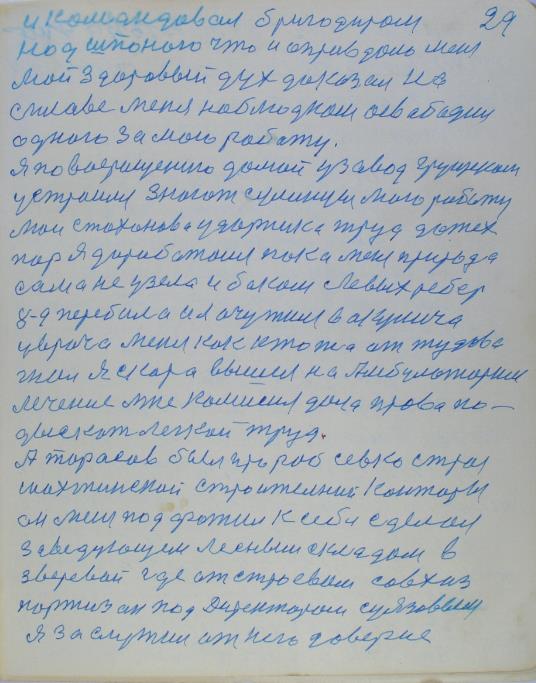 29
и командовал бригодиром
под шпоного что и оправдоло меня
мой здоровый дух доказал на
сплаве меня наблюдком освабадил
одного за мою работу.
я по возращению домой у завод грущиком
устроилса
мою работу
мои стоханова ударника труд до тех
пор я доработался пока меня природа
сама не узела и баком левых ребер
8-а перебила и я очутился в
у врача меня как кто жа от тудова
гнал я скора вышел на Амбулаторния
лечение мне комисия дола права по-
дыскат легкой труд.
А торасов был пророб севкостроя
шахтинской строителний конторы
он меня поддрожил к себи сделал
заведующем лесным складом в
зверевой где от строевал совхиз
портизан под директором суязовым
я заслужил от него доверие